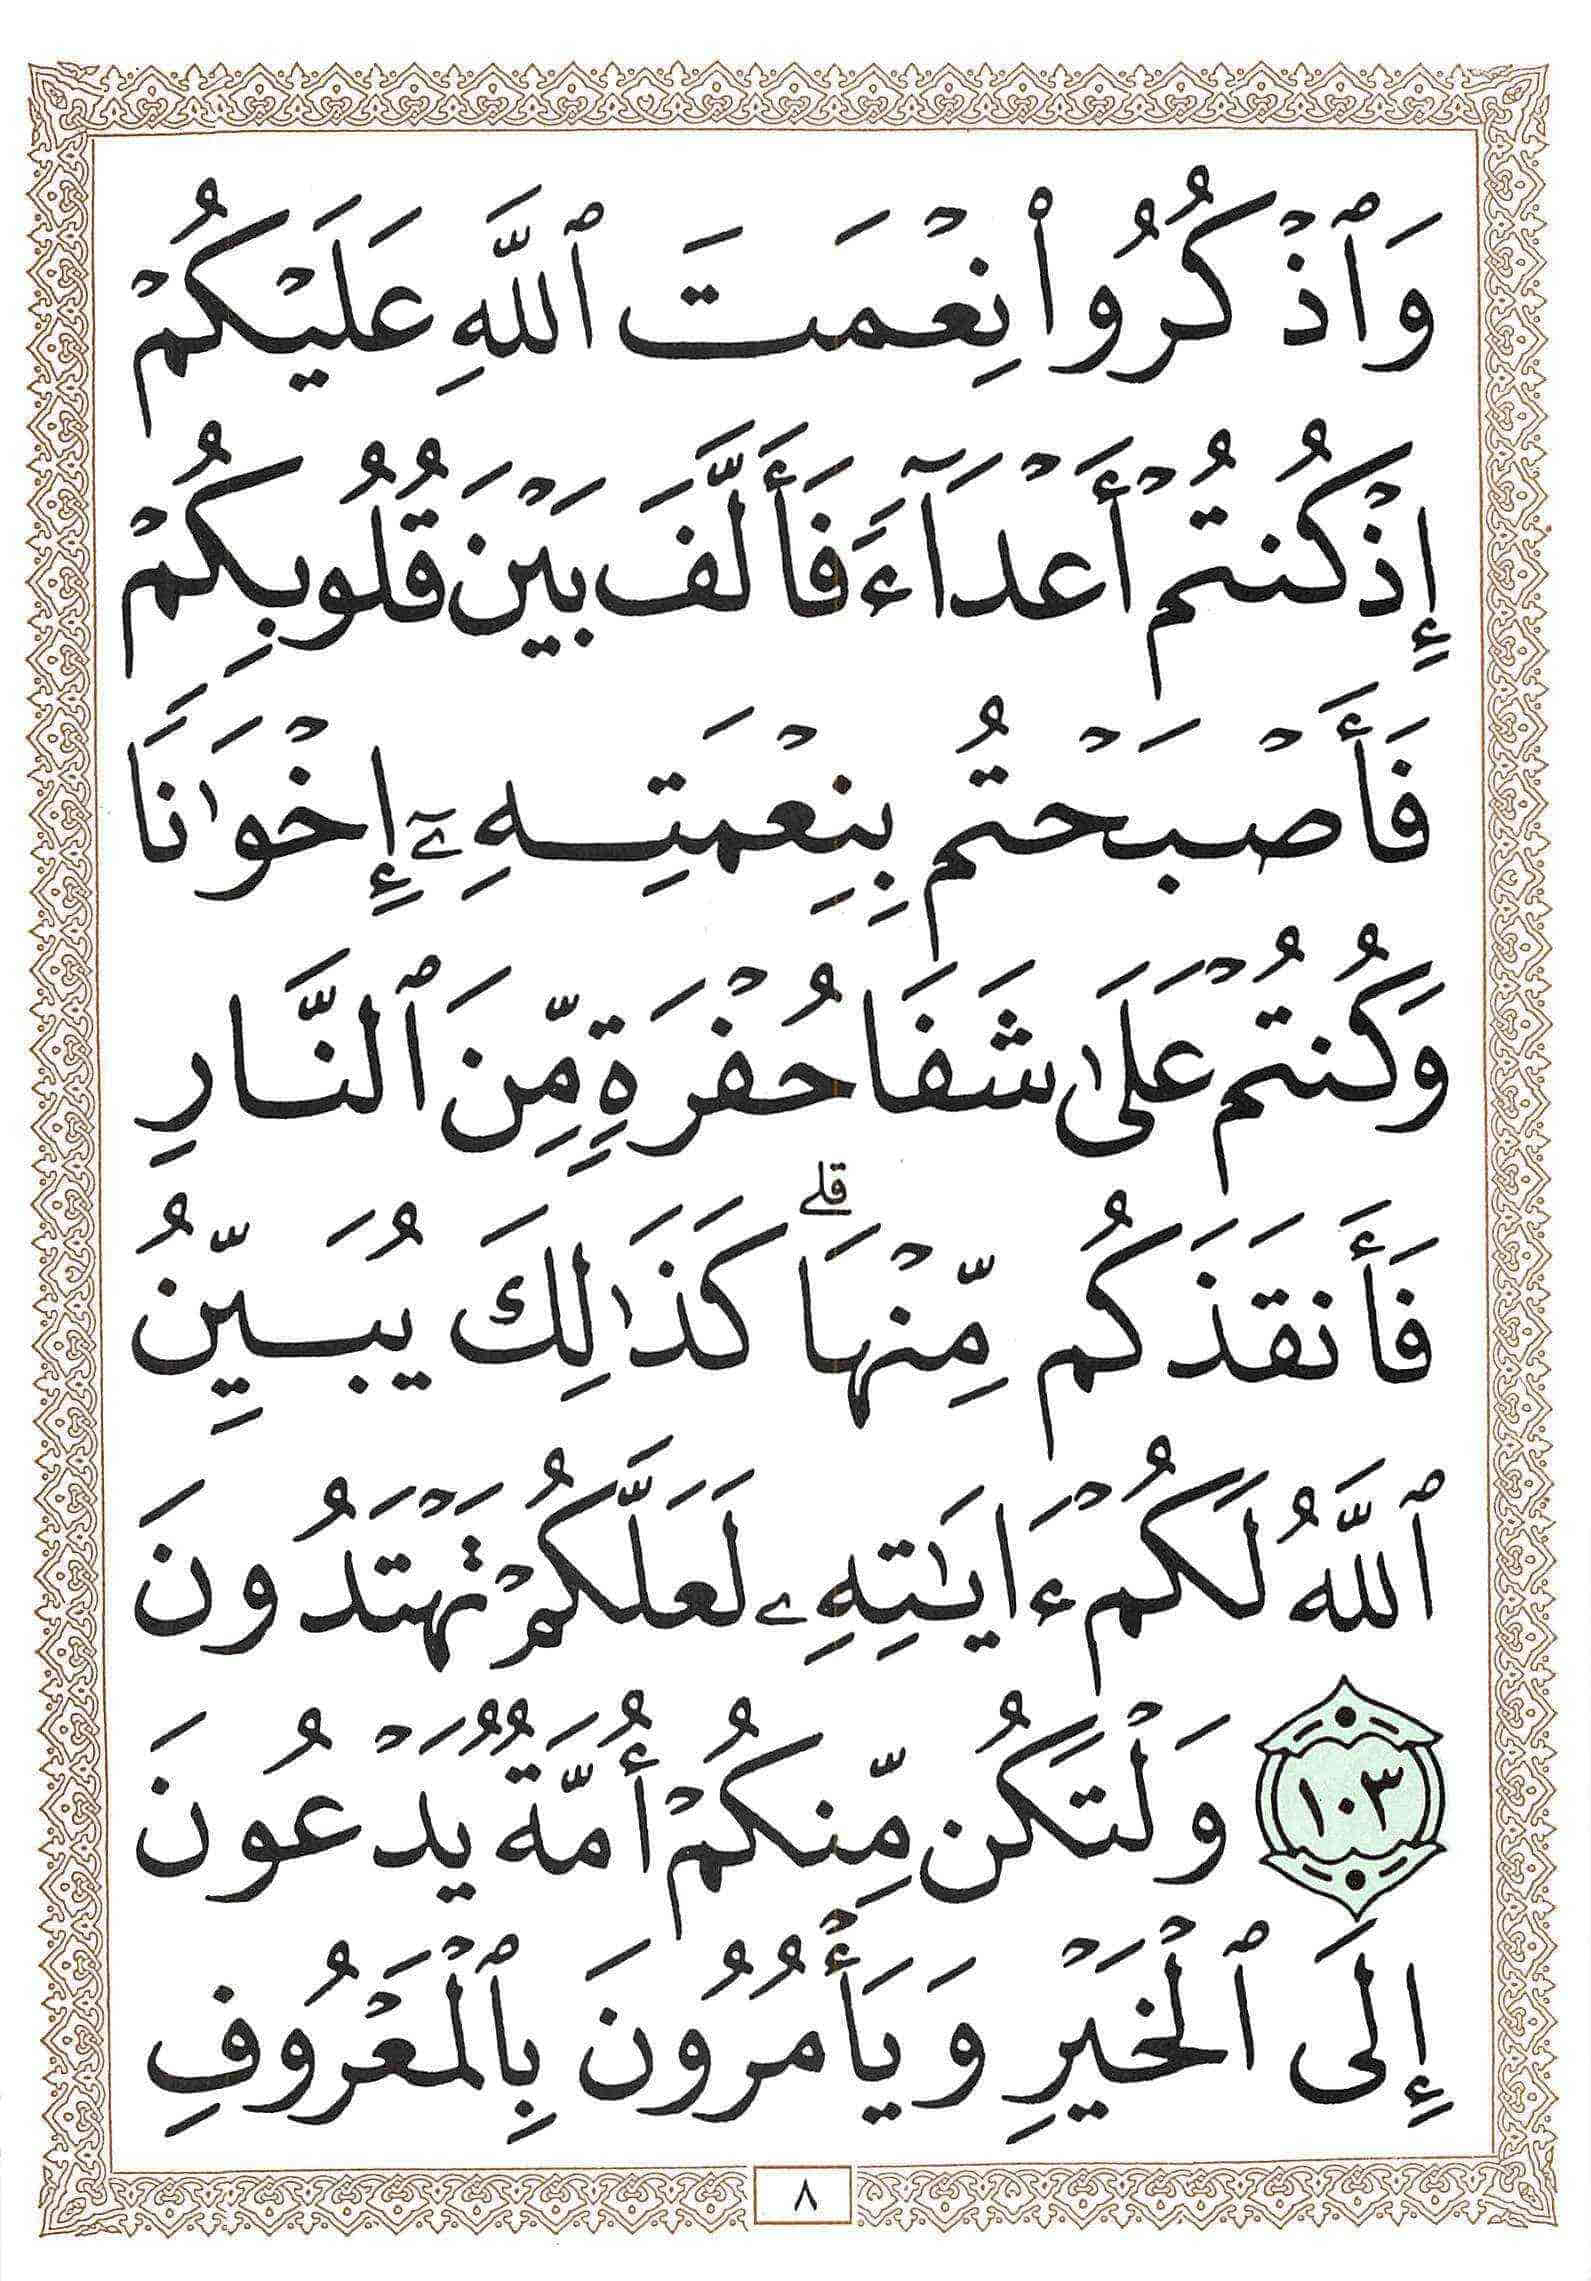 وَٱذْكُرُوا۟ نِعْمَتَ ٱللَّهِ عَلَيْكُمْ
إِذْ كُنتُمْ أَعْدَآءً فَأَلَّفَ بَيْنَ قُلُوبِكُمْ
فَأَصْبَحْتُم بِنِعْمَتِهِۦٓ إِخْوَٰنًا
وَكُنتُمْ عَلَىٰ شَفَا حُفْرَةٍ مِّنَ ٱلنَّارِ
فَأَنقَذَكُم مِّنْهَا ۗ كَذَٰلِكَ يُبَيِّنُ
ٱللَّهُ لَكُمْ ءَايَـٰتِهِۦ لَعَلَّكُمْ تَهْتَدُونَ
١٠٣ وَلْتَكُن مِّنكُمْ أُمَّةٌ يَدْعُونَ
إِلَى ٱلْخَيْرِ وَيَأْمُرُونَ بِٱلْمَعْرُوفِ
٨